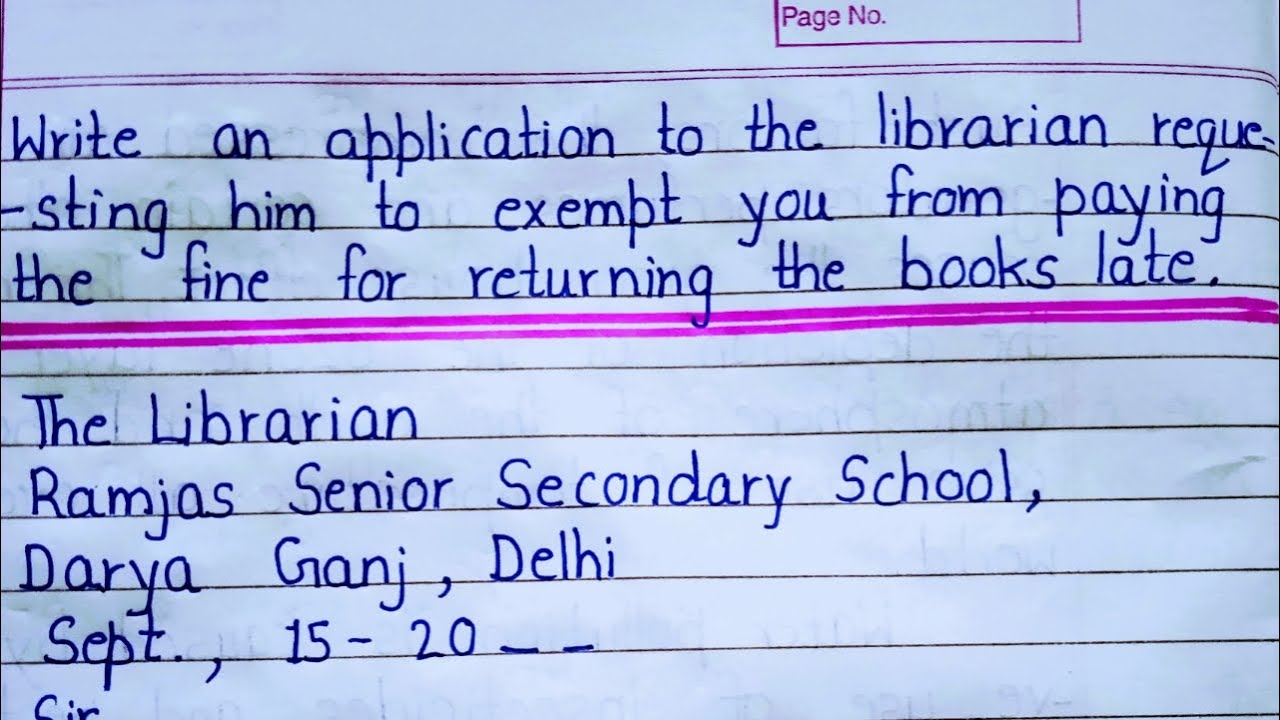 Page No.
Write an application to the librarian reque-
-sting him to exempt you from paying
the fine for returning the books late.
The Librarian
Ramjas Senior Secondary School,
Darya Ganj, Delhi
Sept., 15 - 20 _ _
Sir